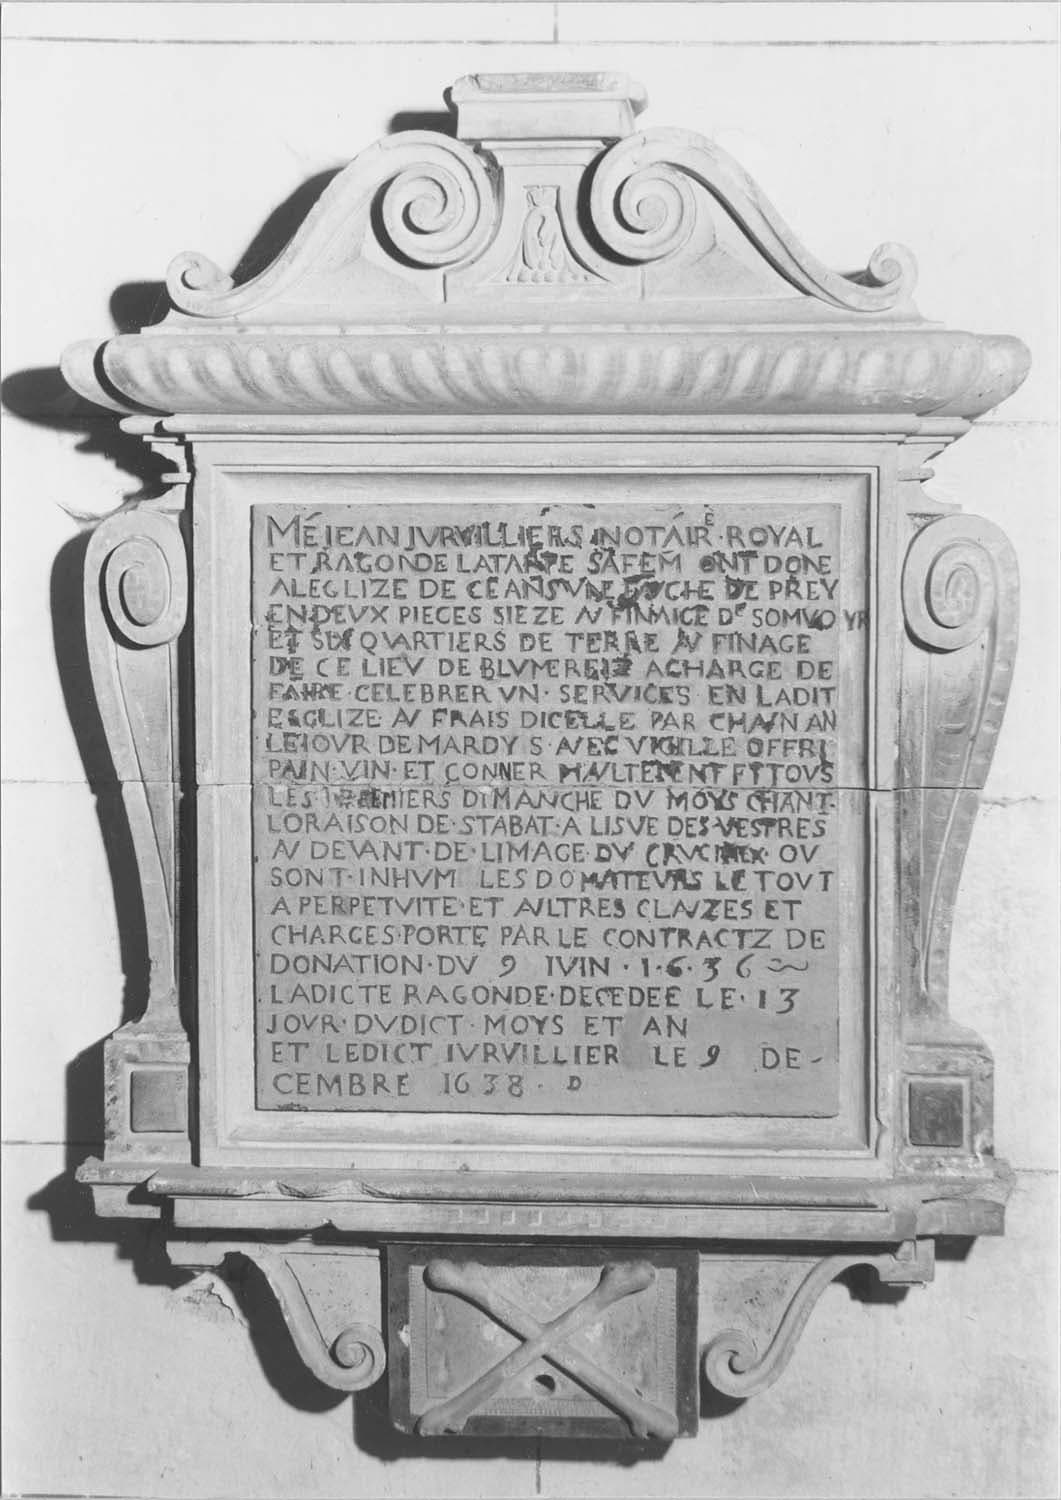 MÉ IEAN JVRVILLIÉRS NOTAIRᴱ ROYAL
ET RAGONDE LATARTE SAFEM ONT DONE
ALEGLIZE DE CEANS VNE DE PREY
EN DEVX PIECES SIEZE AV FINAIGE Dᴱ SOMVOYR
ET SIX QVARTIERS DE TERRE AV FINAGE
DE CE LIEV DE BLVMEREIZ ACHARGE DE
FAIRE·CELEBRER VN·SERVICES EN LADIT
ESGLIZE AV FRAIS DICELLE PAR CHAVN AN
LEIOVR DE MARDY S·AVEC VIGILLE OFFRI
PAIN·VIN·ET CONNER HAVLTEMENT ET TOVS
LES PREMIERS DIMANCHE DV MOYS CHANT·
LORAISON DE·STABAT·A LISVE DES·VESPRES
AV DEVANT·DE·LIMAGE·DV CRVCIFIEX·OV
SONT·INHVM LES DOMATEVRS LE TOVT
A PERPETVITE·ET AVLTRES CLAVZES ET
CHARGES·PORTE PAR LE CONTRACTZ DE
DONATION·DV 9 IVIN·1·6·36
LADICTE RAGONDE·DECEDEE LE·13
JOVR·DVDICT·MOYS ET AN
ET LEDICT IVRVILLIER LE 9 DE-
CEMBRE 1638· D